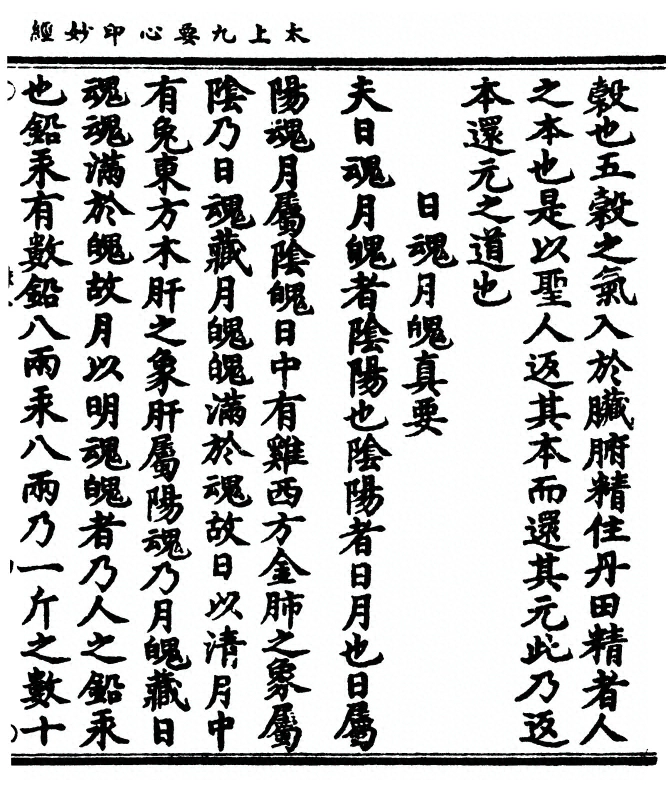 太上九要心印妙經
穀也五穀之氣入於臟腑精住丹田精者人
之本也是以聖人返其本而還其元此乃返
本還元之道也
日魂月魄真要
夫日魂月魄者陰陽也陰陽者日月也日屬
陽魂月屬陰魄日中有雞西方金肺之象屬
陰乃日魂藏月魄魄滿於魂故日以清月中
有兔東方木肝之象肝屬陽魂乃月魄藏日
魂魂滿於魄故月以明魂魄者乃人之鉛汞
也鉛汞有數鉛八兩汞八兩乃一斤之數十